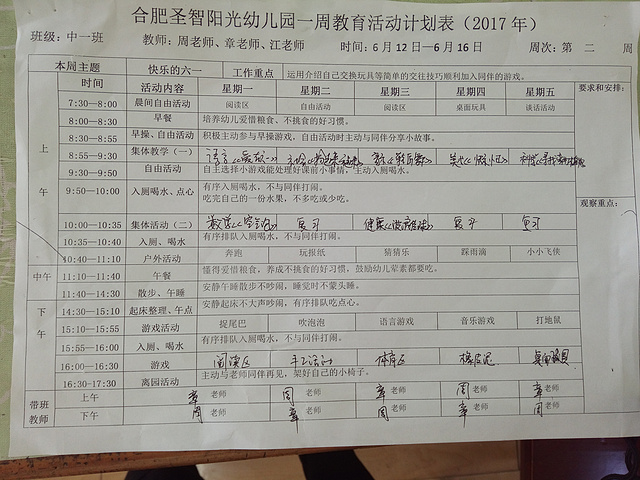 合肥圣智阳光幼儿园一周教育活动计划表（2017年）
班级：中一班 教师：周老师、章老师、江老师 时间：6月12日—6月16日 周次：第 二 周
本周主题 快乐的六一 工作重点 运用介绍自己交换玩具等简单的交往技巧顺利加入同伴的游戏。 要求和安排：
时间 活动内容 星期一 星期二 星期三 星期四 星期五
上午
7:30—8:00 晨间自由活动 阅读区 自由活动 阅读区 桌面玩具 谈话活动
8:00—8:30 早餐 培养幼儿爱惜粮食、不挑食的好习惯。
8:30—8:55 早操、自由活动 积极主动参与早操游戏，自由活动时主动与同伴分享小故事。
8:55—9:30 集体教学（一） 语言
9:30—9:50 自由活动 自主选择小游戏能处理好课前小事情，主动入厕喝水。
9:50—10:00 入厕喝水、点心 有序入厕喝水，不与同伴打闹。
吃完自己的一份水果，不多吃或少吃。
观察重点：
10:00—10:35 集体活动（二） 复习 健康 复习 复习
10:35—10:40 入厕、喝水 有序排队入厕喝水，不与同伴打闹。
10:40—11:10 户外活动 奔跑 玩报纸 猜猜乐 踩雨滴 小小飞侠
中午
11:10—11:40 午餐 懂得爱惜粮食，养成不挑食的好习惯，鼓励幼儿荤素都要吃。
11:40—14:30 散步、午睡 安静午睡散步不吵闹，睡觉时不蒙头睡。
下午
14:30—15:10 起床整理、午点 安静起床不大声吵闹，有序排队吃点心。
15:10—15:55 游戏活动 捉尾巴 吹泡泡 语言游戏 音乐游戏 打地鼠
15:55—16:00 入厕、喝水 有序排队入厕喝水，不与同伴打闹。
16:00—16:30 游戏 阅读区 手工活动 体育区 橡皮泥 桌面玩具
16:30-17:30 离园活动 主动与老师同伴再见，架好自己的小椅子。
带班教师
上午 章老师 周老师 章老师 周老师 章老师
下午 周老师 章老师 周老师 章老师 周老师